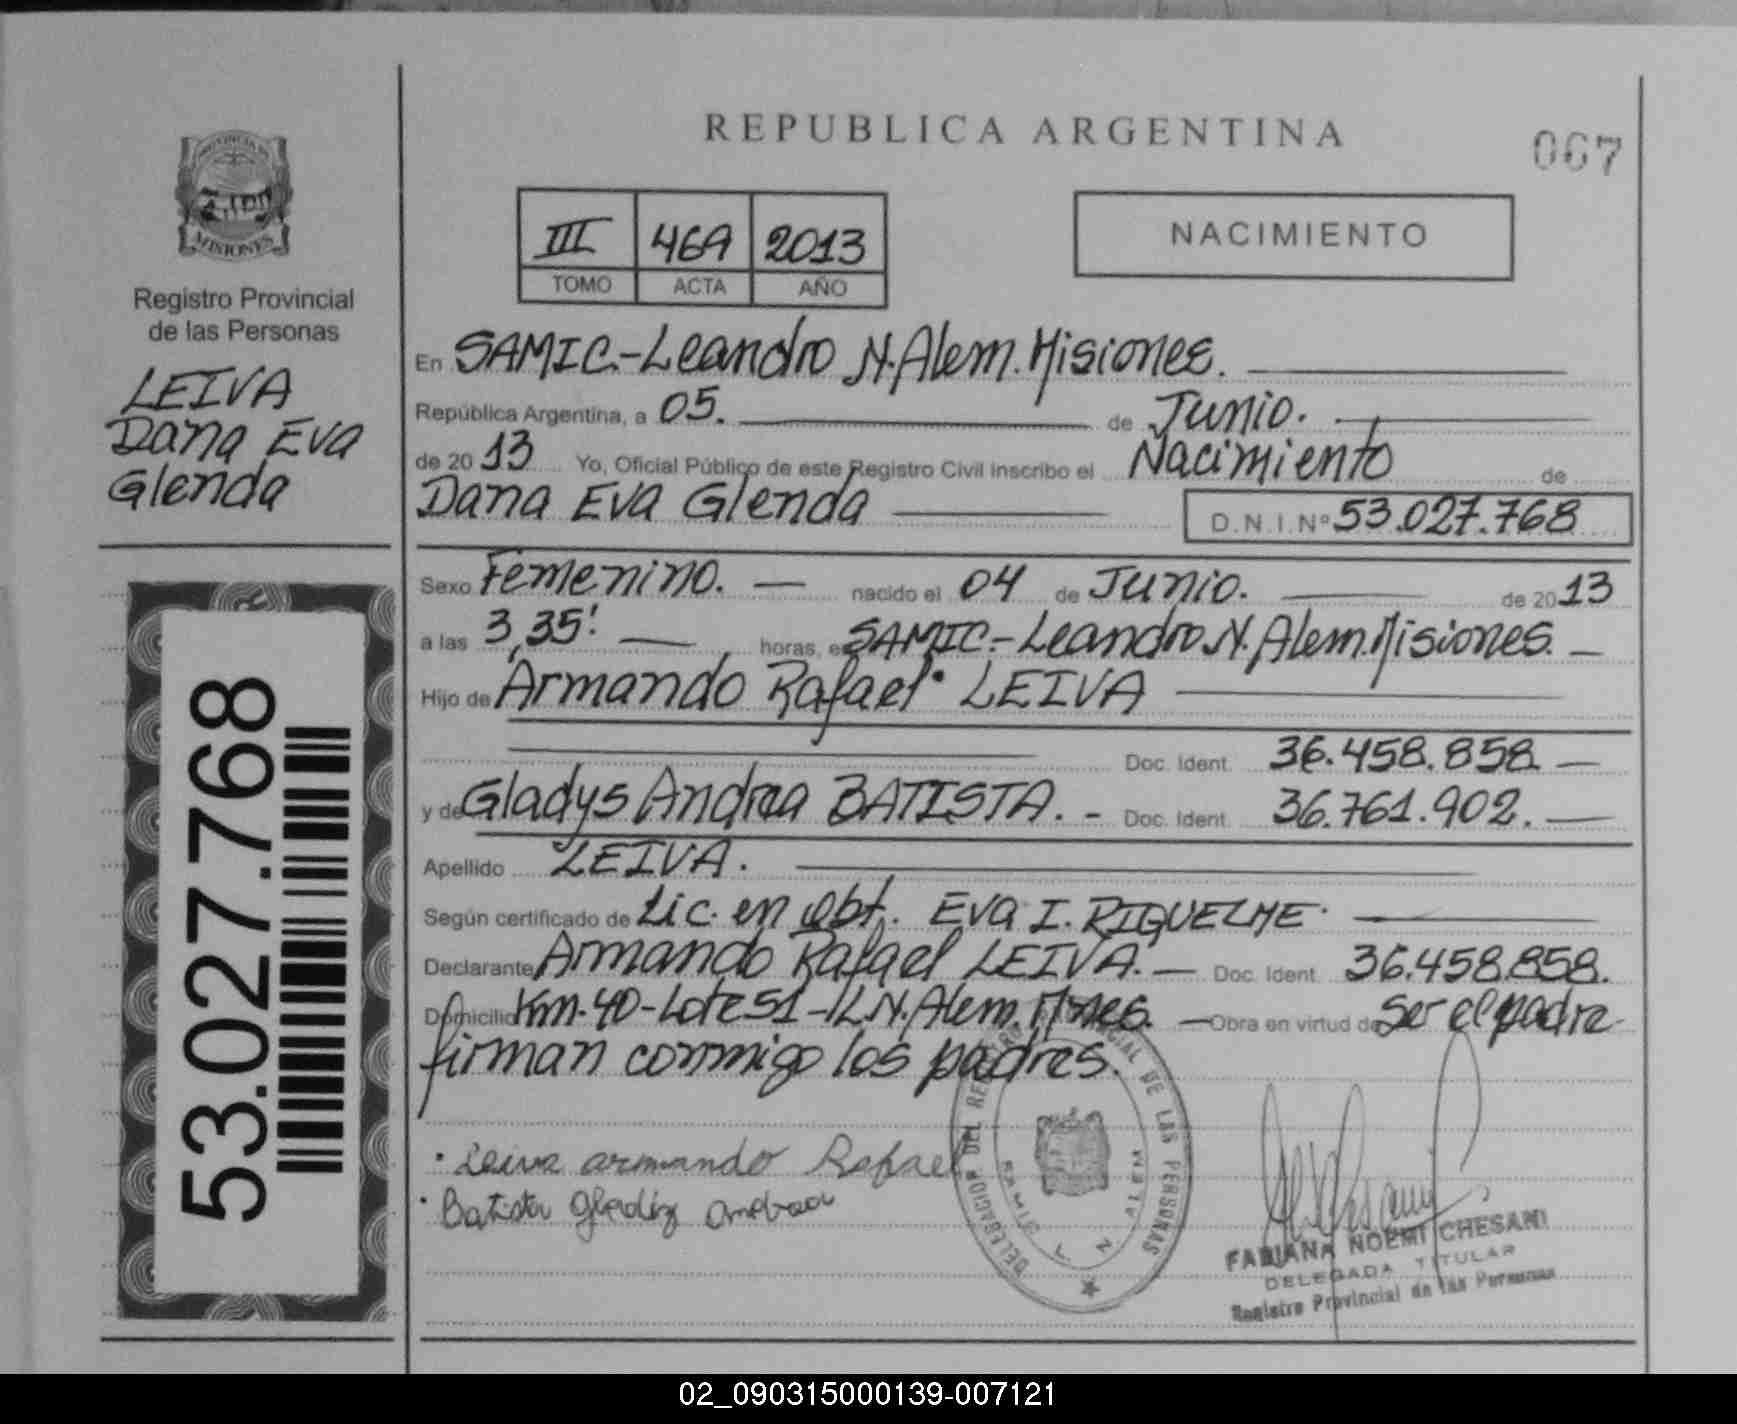 REPUBLICA ARGENTINA
067
PROVINCIA DE
MISIONES
Registro Provincial
de las Personas
LEIVA
Dana Eva
Glenda
III 469 2013
TOMO ACTA AÑO
NACIMIENTO
En SAMIC.-Leandro N. Alem. Misiones.
República Argentina, a 05. de Junio.
de 20 13 Yo, Oficial Público de este Registro Civil inscribo el Nacimiento de
Dana Eva Glenda D.N.I.Nº 53.027.768
Sexo Femenino. nacido el 04 de Junio. de 20 13
a las 3,35! horas, en SAMIC.- Leandro N. Alem. Misiones.
Hijo de Armando Rafael LEIVA
Doc. Ident. 36.458.858.
y de Gladys Andrea BATISTA. - Doc. Ident. 36.761.902.
Apellido LEIVA.
Según certificado de Lic. en Obt. Eva I. RIQUELME.
Declarante Armando Rafael LEIVA. Doc. Ident. 36.458.858.
Domicilio Km.40-Lote 51-L.N.Alem. Mnes. Obra en virtud de Ser el padre
firman conmigo los padres.
Leiva armando Rafael
Batista Gladis Andrea
DELEGACION DEL REGISTRO PROVINCIAL DE LAS PERSONAS
SAMIC L N ALEM
FABIANA NOEMI CHESANI
DELEGADA TITULAR
Registro Provincial de las Personas
53.027.768
02_090315000139-007121